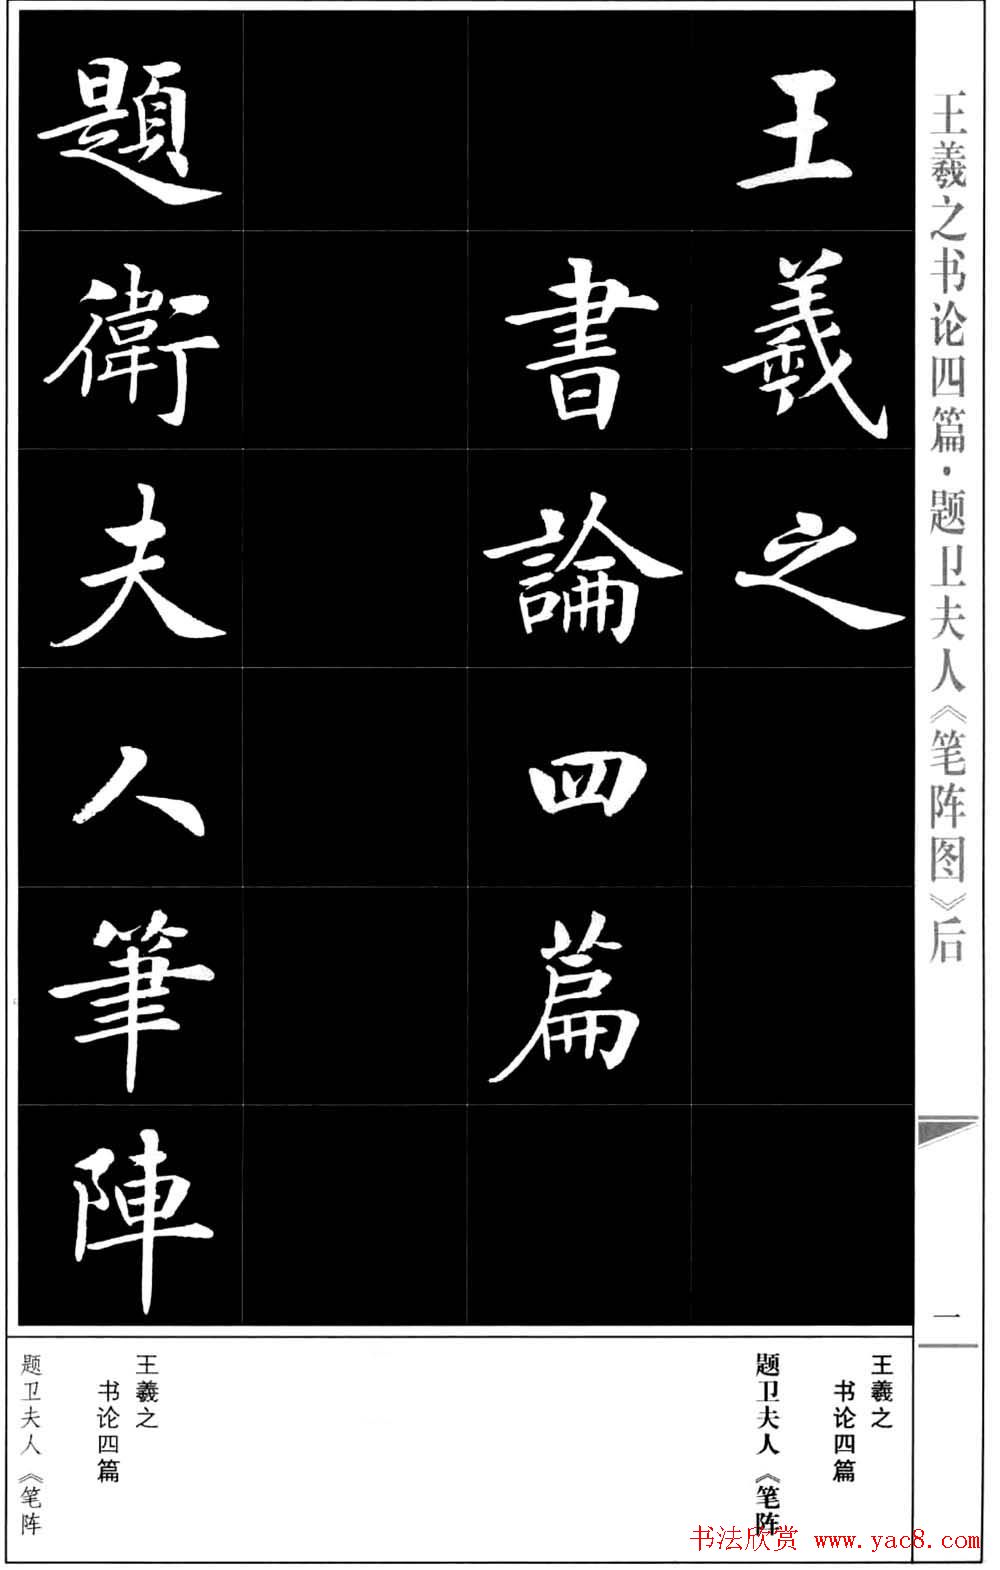 王羲之
書論四篇
題衛夫人筆陣
王羲之书论四篇·题卫夫人《笔阵图》后
一
王羲之
书论四篇
题卫夫人《笔阵
王羲之
书论四篇
题卫夫人《笔阵
书法欣赏 www.yac8.com